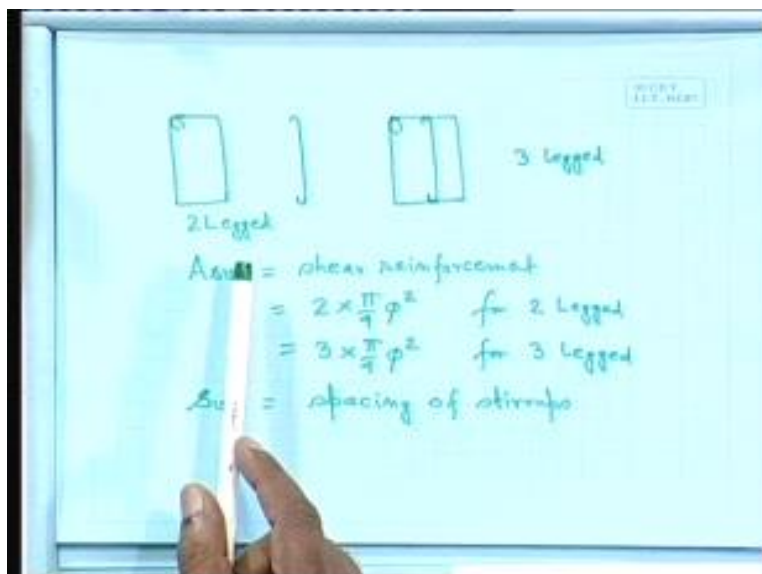 3 Legged
2 Legged
Asv = shear reinforcemet
= 2 × π/4 φ² for 2 Legged
= 3 × π/4 φ² for 3 Legged
Sv = spacing of stirrups